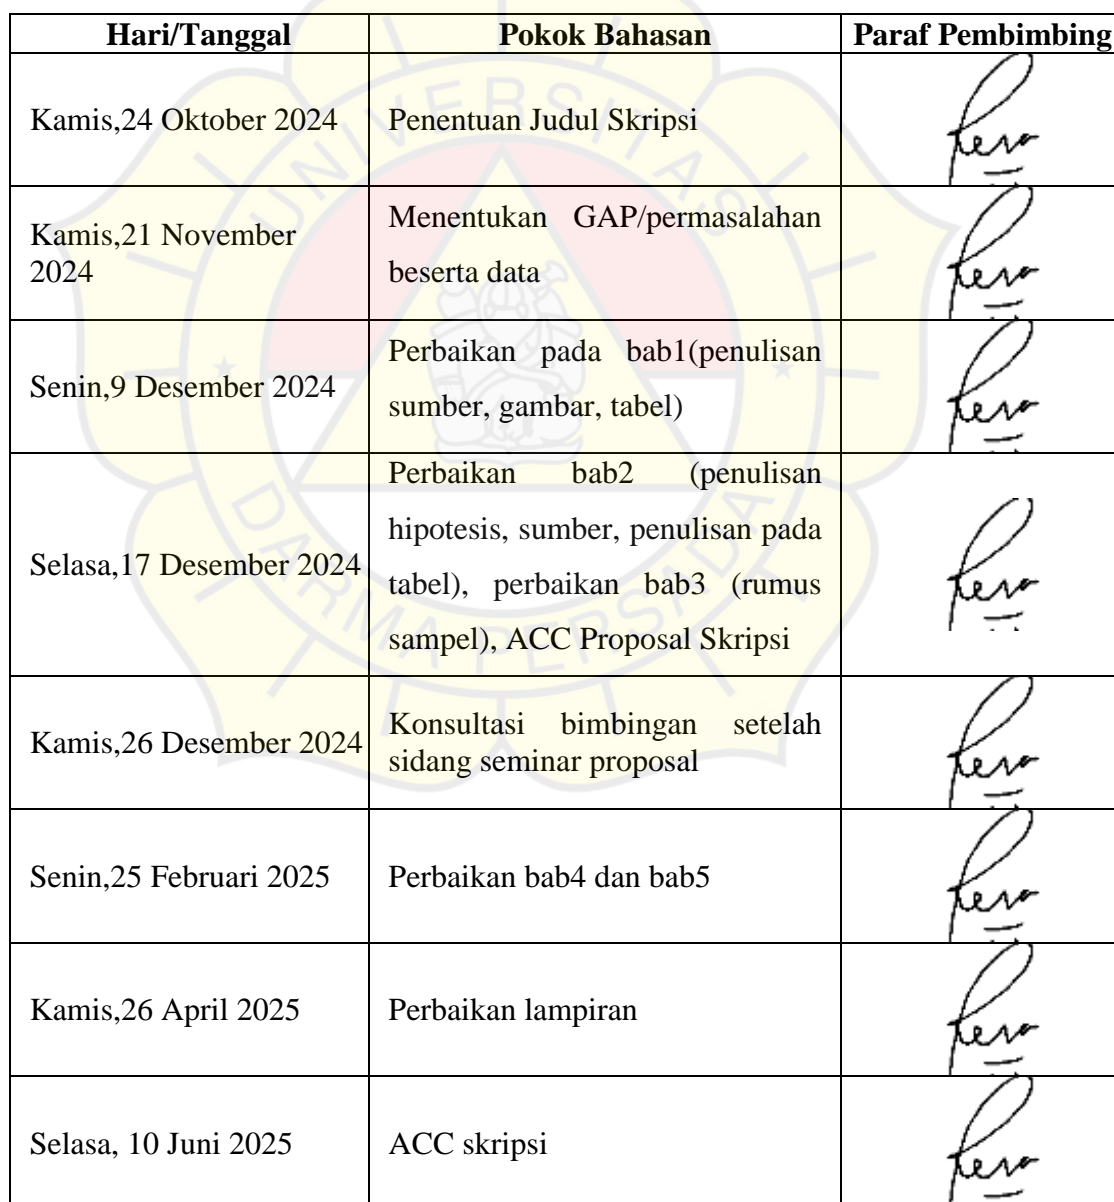 Hari/Tanggal Pokok Bahasan Paraf Pembimbing
Kamis,24 Oktober 2024 Penentuan Judul Skripsi
Kamis,21 November
2024
Menentukan GAP/permasalahan
beserta data
Senin,9 Desember 2024
Perbaikan pada bab1(penulisan
sumber, gambar, tabel)
Selasa,17 Desember 2024
Perbaikan bab2 (penulisan
hipotesis, sumber, penulisan pada
tabel), perbaikan bab3 (rumus
sampel), ACC Proposal Skripsi
Kamis,26 Desember 2024
Konsultasi bimbingan setelah
sidang seminar proposal
Senin,25 Februari 2025 Perbaikan bab4 dan bab5
Kamis,26 April 2025 Perbaikan lampiran
Selasa, 10 Juni 2025 ACC skripsi
UNIVERSITAS
DARMA PERSADA